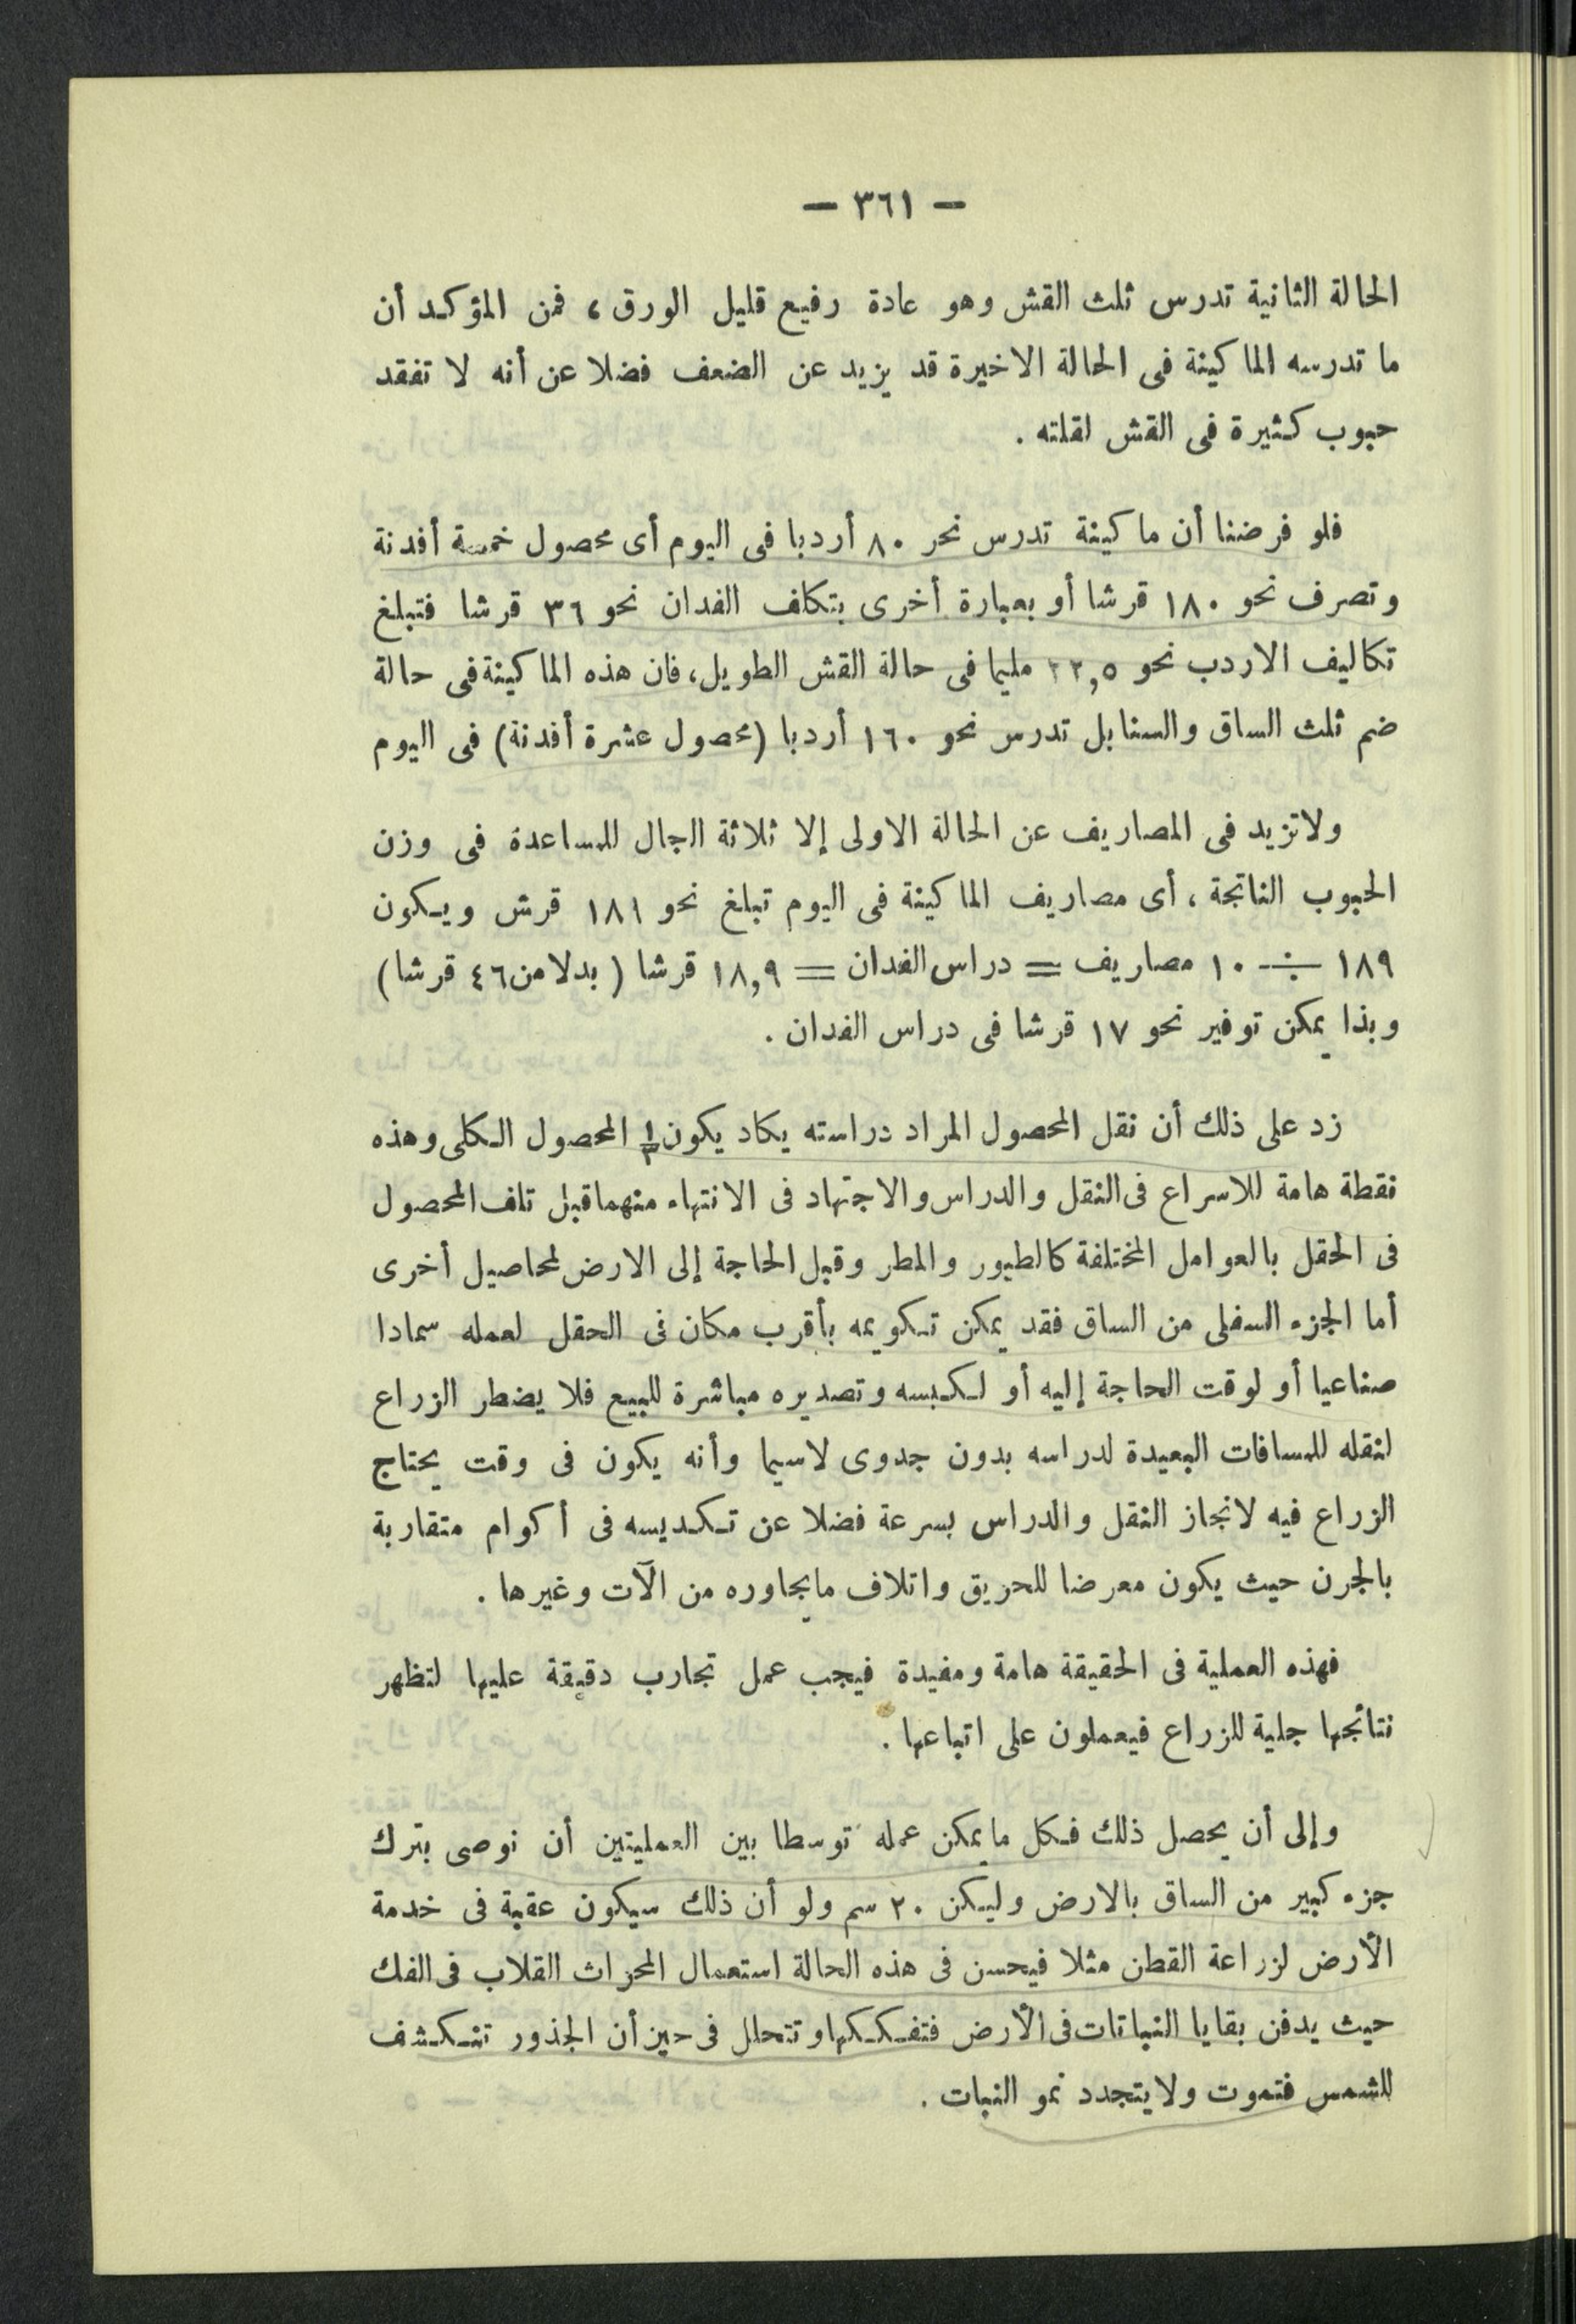 — ٣٦١ —
الحالة الثانية تدرس ثلث القش وهو عادة رفيع قليل الورق، فمن المؤكد أن
ما تدرسه الماكينة فى الحالة الاخيرة قد يزيد عن الضعف فضلا عن أنه لا تفقد
حبوب كثيرة فى القش لقلته .
فلو فرضنا أن ماكينة تدرس نحر ٨٠ أردبا فى اليوم أى محصول خمسة أفدنة
وتصرف نحو ١٨٠ قرشا أو بعبارة أخرى بتكلف الفدان نحو ٣٦ قرشا فتبلغ
تكاليف الاردب نحو ٢٢,٥ مليما فى حالة القش الطويل، فان هذه الماكينة فى حالة
ضم ثلث الساق والسنابل تدرس نحو ١٦٠ أردبا (محصول عشرة أفدنة) فى اليوم
ولا تزيد فى المصاريف عن الحالة الاولى إلا ثلاثة الجال للمساعدة فى وزن
الحبوب الناتجة، أى مصاريف الماكينة فى اليوم تبلغ نحو ١٨١ قرش ويكون
١٨٩ ÷ ١٠ مصاريف = دراس الفدان = ١٨,٩ قرشا (بدلا من ٤٦ قرشا)
وبذا يمكن توفير نحو ١٧ قرشا فى دراس الفدان .
زد على ذلك أن نقل المحصول المراد دراسته يكاد يكون ١/٣ المحصول الكلى وهذه
نقطة هامة للاسراع فى النقل والدراس والاجتهاد فى الانتهاء منهما قبل تلف المحصول
فى الحقل بالعوامل المختلفة كالطيور والمطر وقبل الحاجة إلى الارض لمحاصيل أخرى
أما الجزء السفلى من الساق فقد يمكن تكويمه بأقرب مكان فى الحقل لعمله سمادا
صناعيا أو لوقت الحاجة إليه أو لكبسه وتصديره مباشرة للبيع فلا يضطر الزراع
لنقله للمسافات البعيدة لدراسه بدون جدوى لاسيما وأنه يكون فى وقت يحتاج
الزراع فيه لانجاز النقل والدراس بسرعة فضلا عن تكديسه فى أكوام متقاربة
بالجرن حيث يكون معرضا للحريق واتلاف مايجاوره من الآت وغيرها .
فهذه العملية فى الحقيقة هامة ومفيدة فيجب عمل تجارب دقيقة عليها لتظهر
نتائجها جلية للزراع فيعملون على اتباعها .
وإلى أن يحصل ذلك فكل مايمكن عمله توسطا بين العمليتين أن نوصى بترك
جزء كبير من الساق بالارض وليكن ٢٠ سم ولو أن ذلك سيكون عقبة فى خدمة
الأرض لزراعة القطن مثلا فيحسن فى هذه الحالة استعمال المحراث القلاب فى الفك
حيث يدفن بقايا النباتات فى الأرض فتفككها وتتحلل فى حين أن الجذور تنكشف
للشمس فتموت ولا يتجدد نمو النبات .